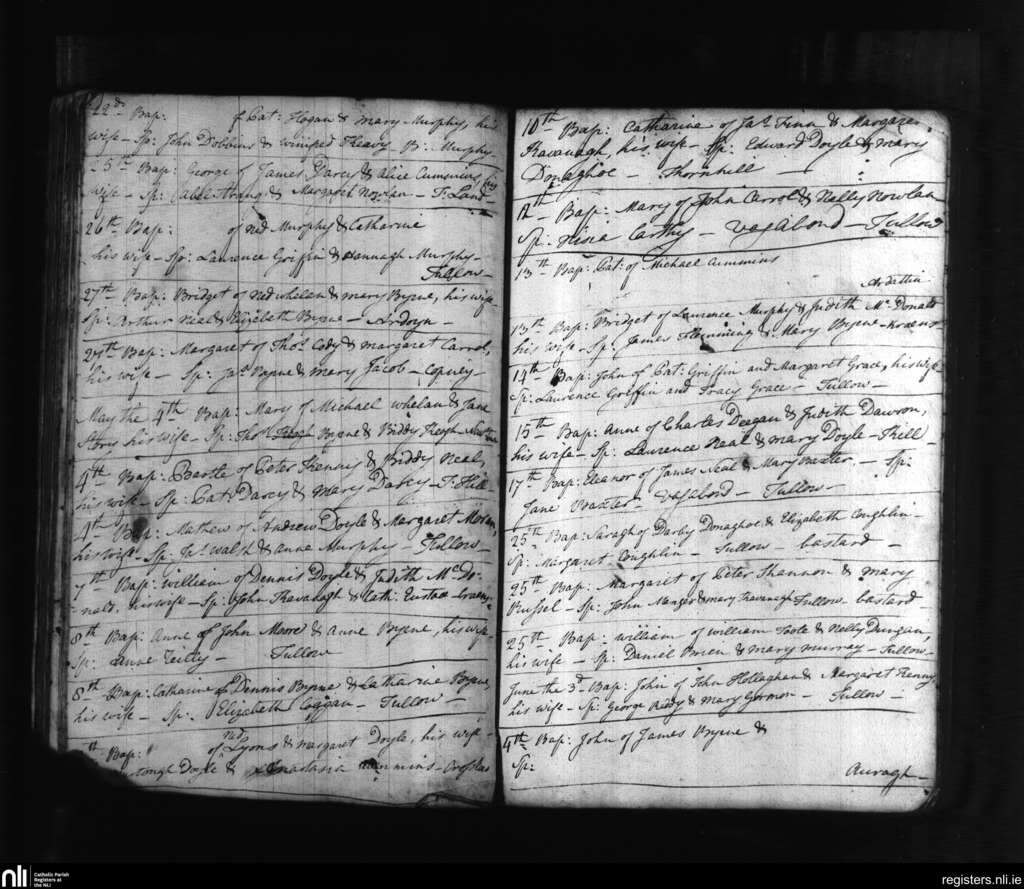 22d Bap: of Pat: Hogan & Mary Murphy, his
wife - Sp: John Dobbins & Winifred Heavy B: Murphy-
25th Bap: George of James Darcy & Alice Cummins his
wife - Sp: Strong & Margaret Nowlan - T: Land
26th Bap: of Ned Murphy & Catharine
his wife - Sp: Laurence Griffin & Hannagh Murphy-
Tullow-
27th Bap: Bridget of Ned Whelan & Mary Byrne, his wife
Sp: Arthur Neal & Elizebeth Byrne - Ardoyn-
27th Bap: Margaret of Thos. Cody & Margaret Carrol,
his wife - Sp: Jas. Byrne & Mary Jacob -
May the 4th Bap: Mary of Michael Whelan & Jane
Story his wife - Sp: Thos. Byrne & Biddy Keogh
4th Bap: of Peter Kenny & Biddy Neal,
his wife - Sp: Pat: Darcy & Mary Darcy - T: Hill
4th Bap: Mathew of Andrew Doyle & Margaret Moran,
his wife Sp: Walsh & Anne Murphy - Tullow-
7th Bap: William of Dennis Doyle & Judith McDo-
nald his wife - Sp: John Kavanagh & Cath: Eustace
8th Bap: Anne of John Moore & Anne Byrne, his wife
Sp: Anne Tully - Tullow
8th Bap: Catharine of Dennis Byrne & Catharine Byrne,
his wife - Sp: Elizabeth Coggan - Tullow-
Bap: of Ned Lyons & Margaret Doyle, his wife -
Doyle & Anastasia Cummins-
10th Bap: Catharine of Jas. Finn & Margaret
Kavanagh, his wife - Sp: Edward Doyle & Mary
Donaghoe - Thornhill -
12th Bap: Mary of John Carrol & Nelly Nowlan
Sp: Carthy - Vagabond - Tullow
13th Bap: Pat: of Michael Cummins
Ardattin
13th Bap: Bridget of Laurence Murphy & Judith McDonald
his wife - Sp: James Flemming & Mary Byrne -
14th Bap: John of Pat: Griffin and Margaret Grace, his wife
Sp: Laurence Griffin and Tracy Grace - Tullow-
15th Bap: Anne of Charles Deegan & Judith Dawson,
his wife - Sp: Laurence Neal & Mary Doyle -
17th Bap: Eleanor of James Neal & Mary Baxter - Sp:
Jane Baxter - Vagabond - Tullow-
25th Bap: Saragh of Darby Donaghoe & Elizabeth Coughlin-
Sp: Margaret Coughlin - Tullow - bastard -
25th Bap: Margaret of Peter Shannon & Mary
Russel - Sp: John & Mary Kavanagh Tullow - bastard
25th Bap: William of William Toole & Nelly Dungan,
his wife - Sp: Daniel Brien & Mary Murray - Tullow-
June the 3d - Bap: John of John Hollaghan & Margaret Kenny
his wife - Sp: George Reddy & Mary Gorman - Tullow -
4th Bap: John of James Byrne &
Sp:
Auragh-
nli
Catholic Parish
Registers at
the NLI
registers.nli.ie